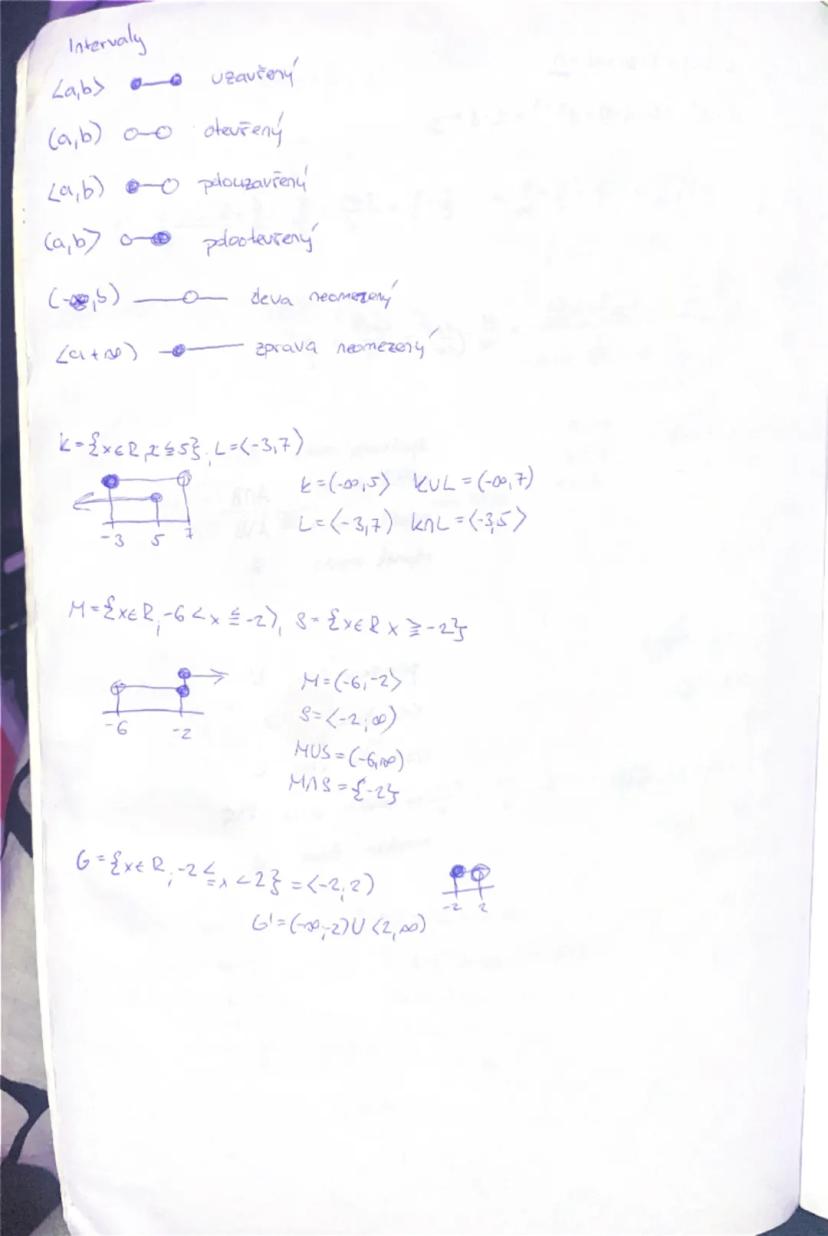 Intervaly
<a,b> uzavřený
(a,b) otevřený
<a,b) pdouzavřený
(a,b> pdootevřený
(-∞,b) zleva neomezený
<a,+∞) zprava neomezený
K={x∈R, x≦5}, L=<-3,7)
K=(-∞,5> K∪L=(-∞,7)
-3 5 7 L=<-3,7) K∩L=<-3,5>
M={x∈R, -6<x≦-2), S={x∈R x≧-2}
M=(-6,-2>
-6 -2 S=<-2,∞)
M∪S=(-6,∞)
M∩S={-2}
G={x∈R, -2≦x<2}=<-2,2) -2 2
G'=(-∞,-2)∪<2,∞)